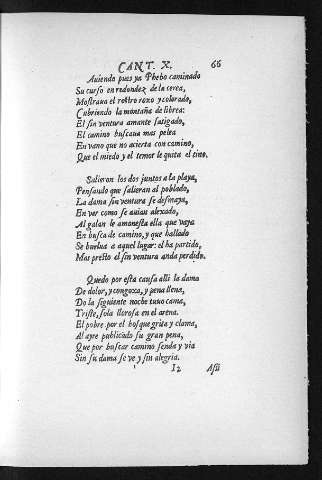 CANT. X. 66
Auiendo pues ya Phebo caminado
Su curso en redondez de la cerea,
Mostraua el rostro roxo y colorado,
Cubriendo la montaña de librea:
El sin ventura amante fatigado,
El camino buscaua mas pelea
En vano que no acierta con camino,
Que el miedo y el temor le quita el tino.
Salieron los dos juntos a la playa,
Pensando que salieran al poblado,
La dama sin ventura se desmaya,
En ver como se auian alexado,
Al galan le amonesta ella que vaya
En busca de camino, y que hallado
Se buelua a aquel lugar: el ha partido,
Mas presto el sin ventura anda perdido.
Quedo por esta causa alli la dama
De dolor, y congoxa, y pena llena,
Do la siguiente noche tuuo cama,
Triste, sola llorosa en el arena.
El pobre por el bosque grita y clama,
Al ayre publicãdo su gran pena,
Que por buscar camino senda y via
Sin su dama se ve y sin alegria.
I2 Assi